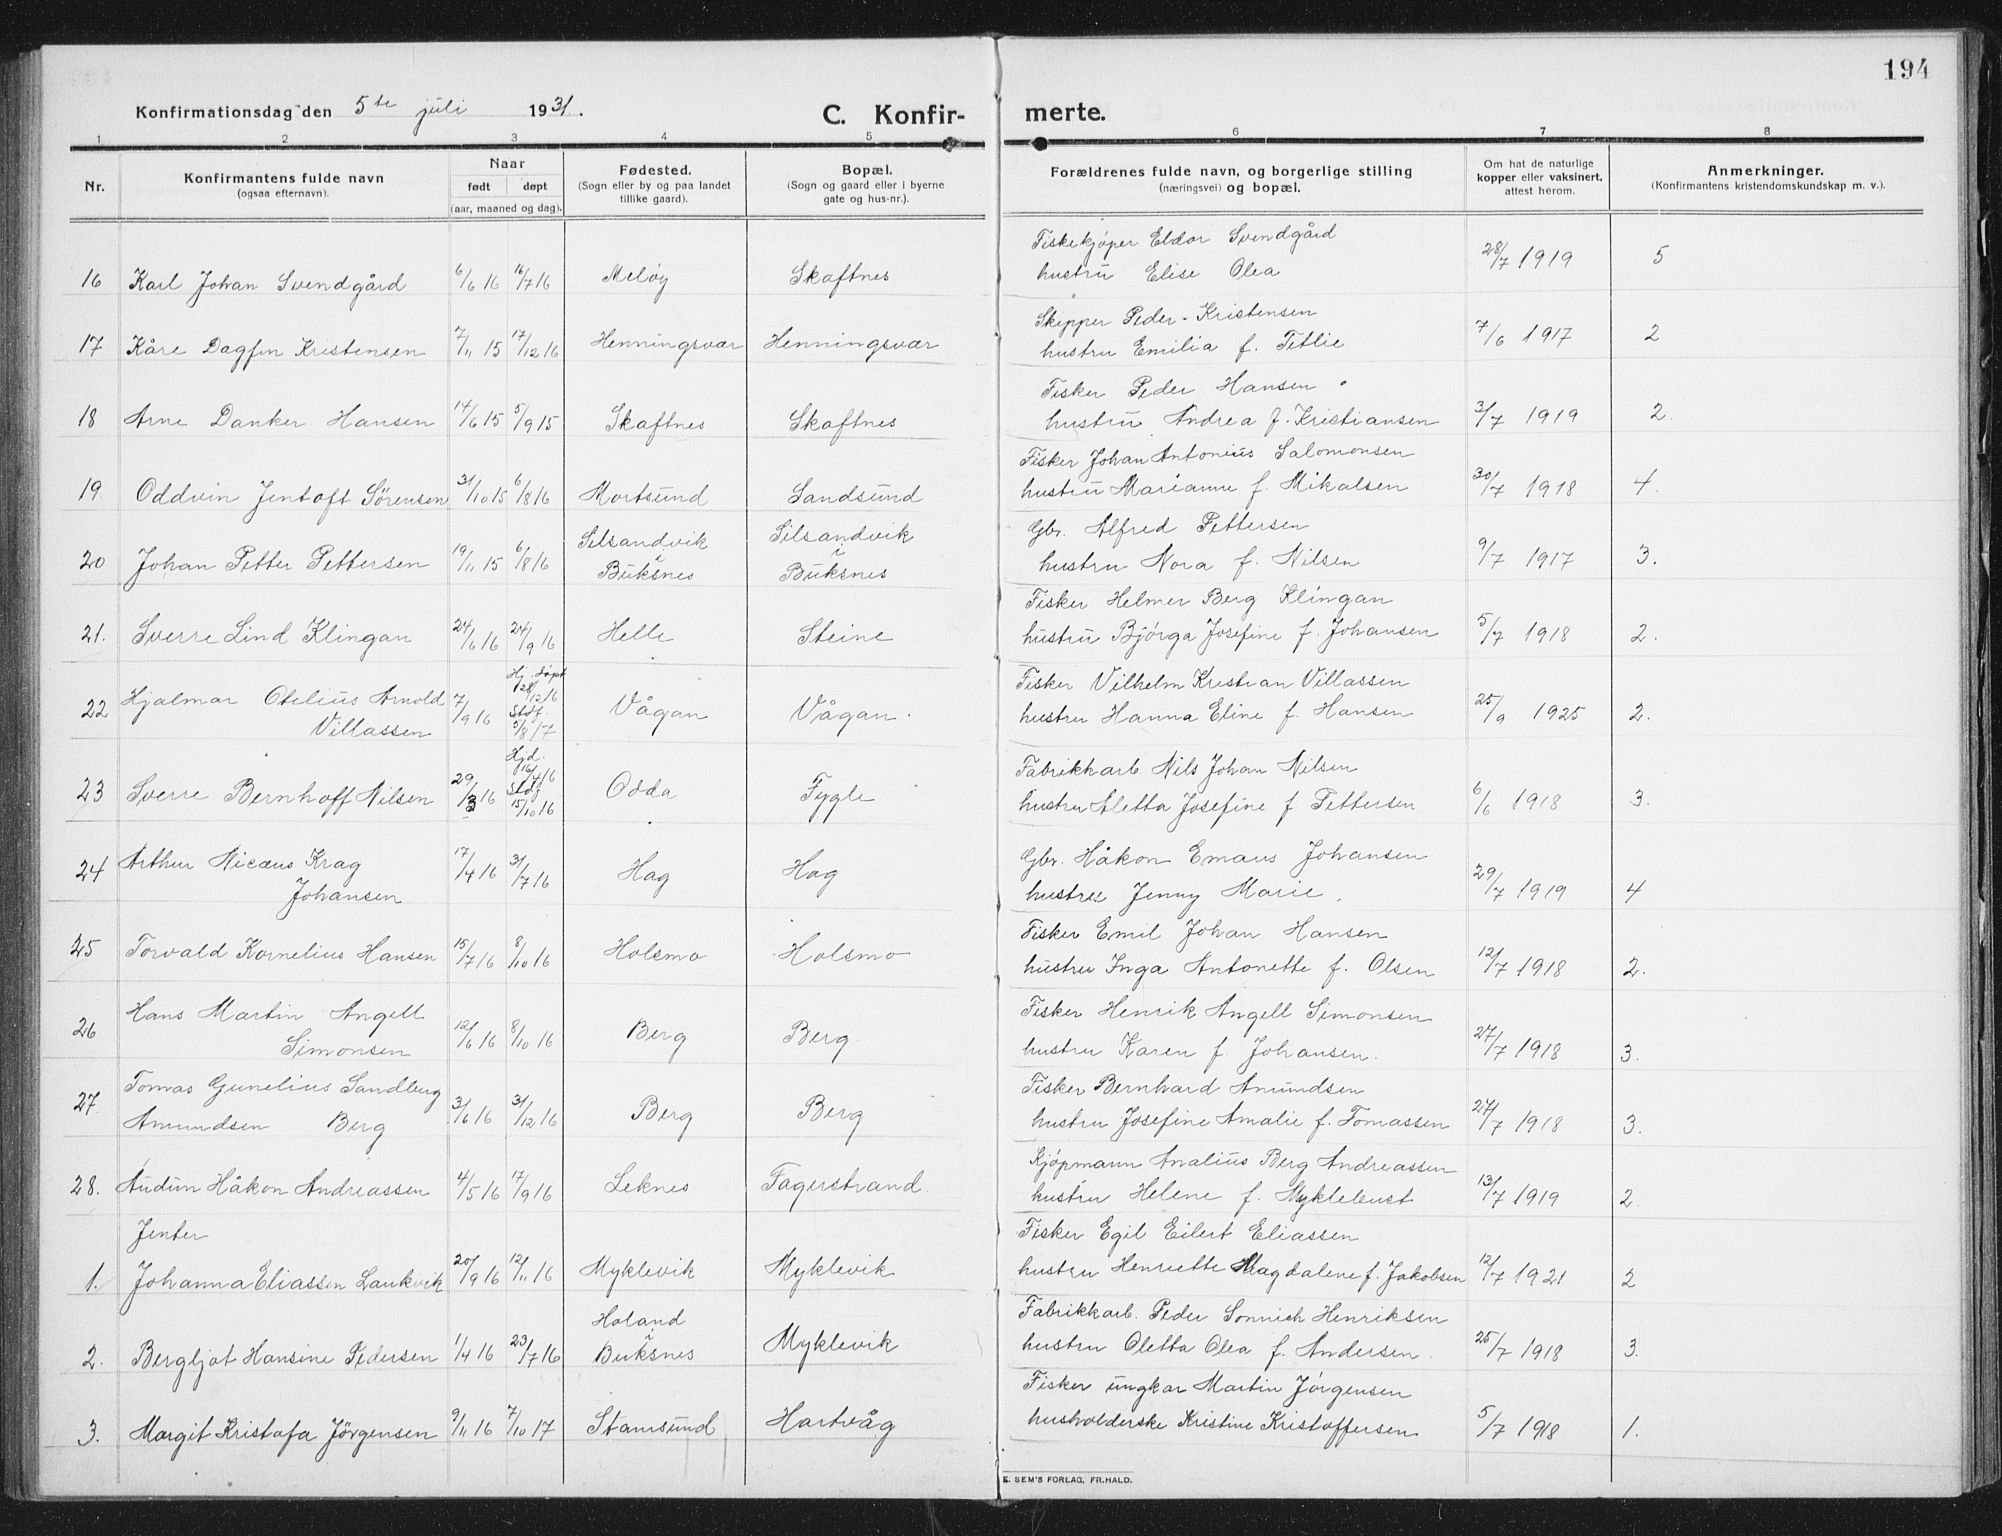 194
Konfirmationsdag den 5te juli 1931.
C. Konfirmerte.
1 2 3 4 5 6 7 8
Nr.
Konfirmantens fulde navn
(ogsaa efternavn).
Naar
født døpt
(aar, maaned og dag).
Fødested.
(Sogn eller by og paa landet
tillike gaard).
Bopæl.
(Sogn og gaard eller i byerne
gate og hus-nr.).
Forældrenes fulde navn, og borgerlige stilling
(næringsvei) og bopæl.
Om hat de naturlige
kopper eller vaksinert,
attest herom.
Anmerkninger.
(Konfirmantens kristendomskundskap m. v.).
Fiskekjøper Eldor Svendgård
16 Karl Johan Svendgård 6/6 16 16/7 16 Meløy Skaftnes hustru Elise Olea 28/7 1919 5
Skipper Peder Kristensen
17 Kåre Dagfin Kristensen 7/11 15 17/12 16 Henningsvær Henningsvær hustru Emilia f. Tetlie 7/6 1917 2
Fisker Peder Hansen
18 Arne Danker Hansen 14/6 15 5/9 15 Skaftnes Skaftnes hustru Andrea f. Kristiansen 31/7 1919 2.
Fisker Johan Antonius Salomonsen
19. Oddvin Jentoft Sørensen 31/10 15 6/8 16 Mortsund Sandsund hustru Marianne f. Mikalsen 30/7 1918 4.
Gbr. Alfred Pettersen
20 Johan Petter Pettersen 19/11 15 6/8 16 Silsandvik i Buksnes Silsandvik i Buksnes hustru Nora f. Nilsen 9/7 1917 3.
Fisker Helmer Berg Klingan
21. Sverre Lind Klingan 24/6 16 24/9 16 Helle Steine hustru Bjørga Josefine f. Johansen 5/7 1918 2.
Fisker Vilhelm Kristian Villassen
22 Hjalmar Otelius Arnold
Villassen 7/9 16 Hj. døpt 28/12 16 Stdf. 5/8 17 Vågan Vågan. hustru Hanna Eline f. Hansen 25/9 1925 2.
Fabrikkarb. Nils Johan Nilsen
23 Sverre Bernhoff Nilsen 29/3 16 Hjd. 16/4 16 Stdf. 15/10 16 Odda Fygle hustru Aletta Josefine f. Pettersen 6/6 1918 3.
Gbr. Håkon Emaus Johansen
24 Arthur Nicæus Krag
Johansen 17/4 16 31/7 16 Hag Hag hustru Jenny Marie. 29/7 1919 4
Fisker Emil Johan Hansen
25 Torvald Kornelius Hansen 15/7 16 8/10 16 Holsmo Holsmo hustru Inga Antonette f. Olsen 12/7 1918 2.
Fisker Henrik Angell Simonsen
26 Hans Martin Angell
Simonsen 12/6 16 8/10 16 Berg Berg. hustru Karen f. Johansen. 27/7 1918 3.
Fisker Bernhard Amundsen
27. Tomas Gunelius Sandberg
Amundsen Berg 3/6 16 31/12 16 Berg Berg hustru Josefine Amalie f. Tomassen 27/7 1918 3.
Kjøpmann Analius Berg Andreassen
28. Audun Håkon Andreassen 4/5 16 17/9 16 Leknes Fagerstrand. hustru Helene f. Myklebust 13/7 1919 2
Jenter
Fisker Egil Eilert Eliassen
1. Johanna Eliassen Laukvik 20/9 16 12/11 16 Myklevik Myklevik hustru Henriette Magdalene f. Jakobsen 12/7 1921 2
Fabrikkarb. Peder Sonnich Henriksen
2. Bergljot Hansine Pedersen 1/4 16 23/7 16 Holand i Buksnes Myklevik hustru Oletta Olea f. Andersen. 25/7 1918 3.
Fisker ungkar Martin Jørgensen
3. Margit Kristofa Jørgensen 9/11 16 7/10 17 Stamsund Hartvåg husholderske Kristine Kristoffersen 5/7 1918 1.
E. SEM'S FORLAG, FR.HALD.